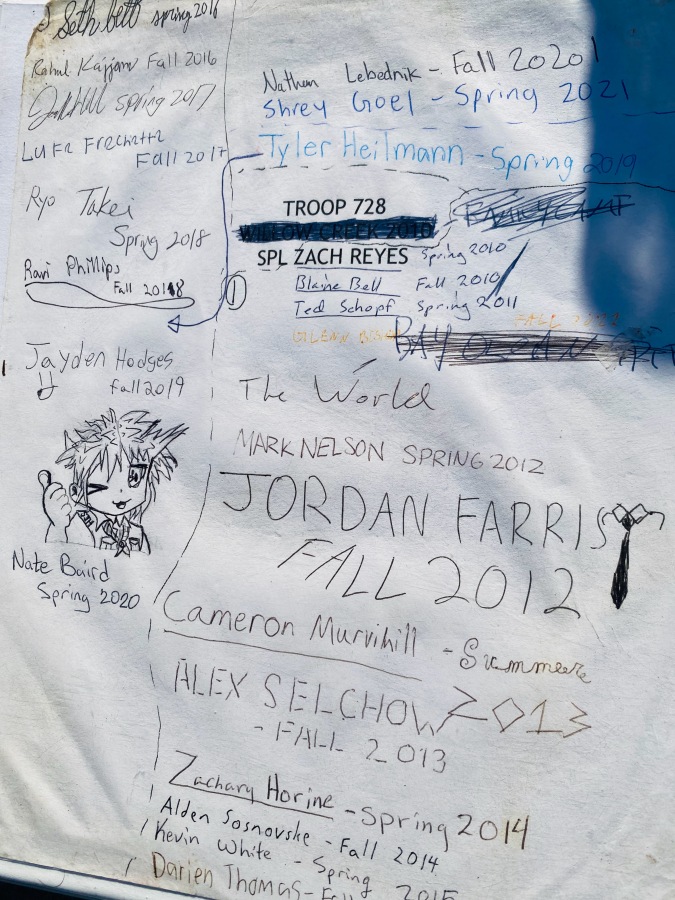 Seth Bett spring 2016
Rahul Kajjam Fall 2016
spring 2017
Luke Frechette
Fall 2017
Ryo Takei
Spring 2018
Ravi Phillips
Fall 2018
Jayden Hodges
fall 2019
Nate Baird
Spring 2020
Nathan Lebednik - Fall 2020
Shrey Goel - Spring 2021
Tyler Heilmann - Spring 2019
TROOP 728
WILLOW CREEK 2010
SPL ZACH REYES Spring 2010
Blaine Bell Fall 2010
Ted Schopf Spring 2011
GLENN FALL
BAY OCEAN
The World
MARK NELSON SPRING 2012
JORDAN FARRIS
FALL 2012
Cameron Murvihill - Summer
2013
ALEX SELCHOW
- FALL 2013
Zachary Horine - Spring 2014
Alden Sosnovske - Fall 2014
Kevin White - Spring
2015
Darien Thomas - Fall